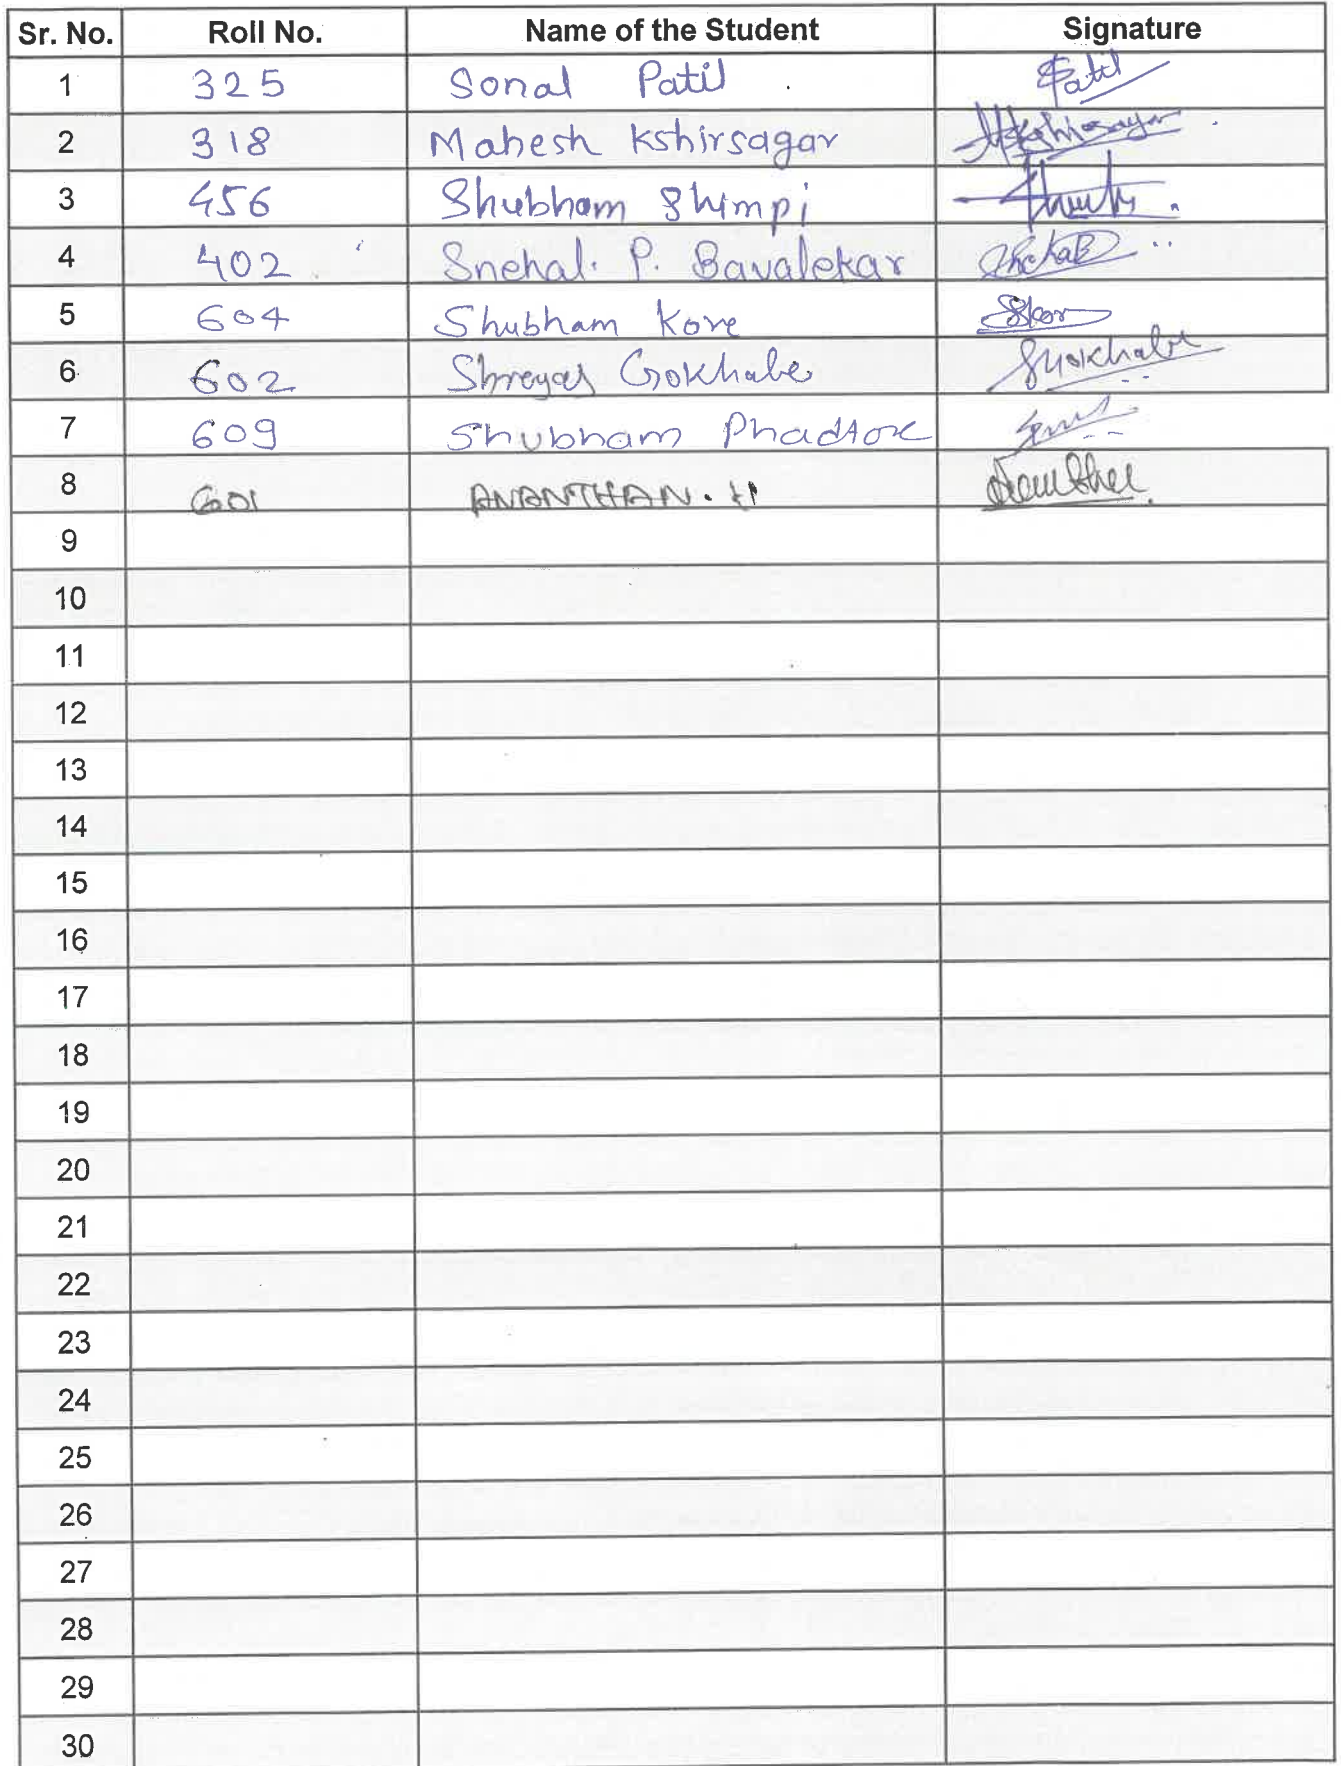 Sr. No. Roll No. Name of the Student Signature
1 325 Sonal Patil Patil
2 318 Mahesh Kshirsagar
3 456 Shubham Shimpi
4 402 Snehal. P. Bavalekar
5 604 Shubham Kore
6 602 Shreyas Gokhale
7 609 Shubham
8 601 ANANTHAN. H
9
10
11
12
13
14
15
16
17
18
19
20
21
22
23
24
25
26
27
28
29
30